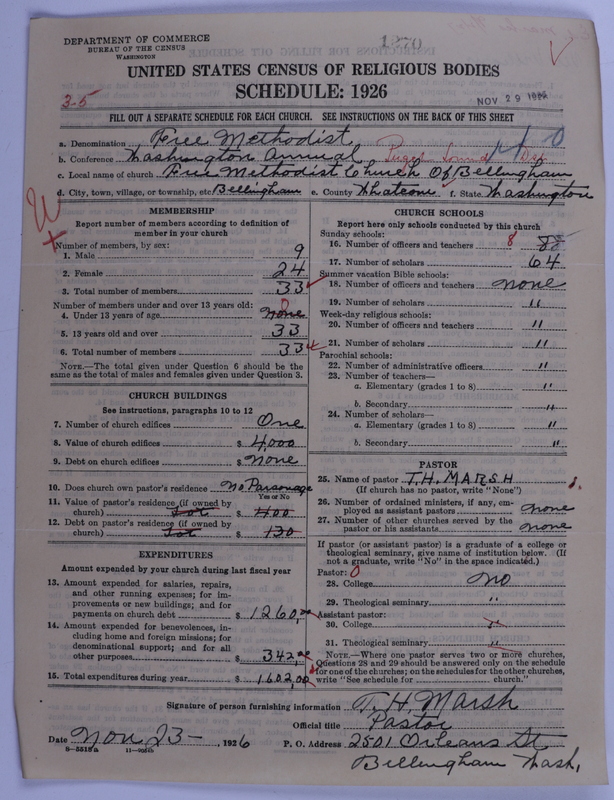 DEPARTMENT OF COMMERCE
BUREAU OF THE CENSUS
WASHINGTON
1270
UNITED STATES CENSUS OF RELIGIOUS BODIES
SCHEDULE: 1926
3-5
NOV 29 1926
FILL OUT A SEPARATE SCHEDULE FOR EACH CHURCH. SEE INSTRUCTIONS ON THE BACK OF THIS SHEET
a. Denomination Free Methodist
b. Conference Washington Annual Puget Sound
c. Local name of church Free Methodist Church Of Bellingham
d. City, town, village, or township, etc Bellingham e. County Whatcom f. State Washington
MEMBERSHIP
Report number of members according to definition of member in your church
Number of members, by sex:
1. Male 9
2. Female 24
3. Total number of members 33
Number of members under and over 13 years old:
4. Under 13 years of age none 0
5. 13 years old and over 33
6. Total number of members 33
NOTE.—The total given under Question 6 should be
same as the total of males and females given under Question 3.
CHURCH BUILDINGS
See instructions, paragraphs 10 to 12
7. Number of church edifices One
8. Value of church edifices $ 4,000
9. Debt on church edifices $ None
10. Does church own pastor's residence No Parsonage
Yes or No
11. Value of pastor's residence (if owned by
church) Lot $ 400
12. Debt on pastor's residence (if owned by
church) Lot $ 130
EXPENDITURES
Amount expended by your church during last fiscal year
13. Amount expended for salaries, repairs,
and other running expenses; for im-
provements or new buildings; and for
payments on church debt $ 1260.00
14. Amount expended for benevolences, in-
cluding home and foreign missions; for
denominational support; and for all
other purposes $ 342.00
15. Total expenditures during year $ 1602.00
CHURCH SCHOOLS
Report here only schools conducted by this church
Sunday schools:
16. Number of officers and teachers 8
17. Number of scholars 64
Summer vacation Bible schools:
18. Number of officers and teachers none
19. Number of scholars "
Week-day religious schools:
20. Number of officers and teachers "
21. Number of scholars "
Parochial schools:
22. Number of administrative officers "
23. Number of teachers—
a. Elementary (grades 1 to 8) "
b. Secondary "
24. Number of scholars—
a. Elementary (grades 1 to 8) "
b. Secondary "
PASTOR
25. Name of pastor T.H. MARSH
(If church has no pastor, write "None")
26. Number of ordained ministers, if any, em-
ployed as assistant pastors none
27. Number of other churches served by the
pastor or his assistants none
If pastor (or assistant pastor) is a graduate of a college or
theological seminary, give name of institution below. (If
not a graduate, write "No" in the space indicated.)
Pastor: 0
28. College No
29. Theological seminary "
Assistant pastor:
30. College "
31. Theological seminary "
NOTE.—Where one pastor serves two or more churches,
Questions 28 and 29 should be answered only on the schedule
for one of the churches; on the schedules for the other churches,
write "See schedule for church."
Signature of person furnishing information T. H. Marsh
Official title Pastor
Date Nov 23- , 1926 P. O. Address 2501 Orleans St
Bellingham Wash.